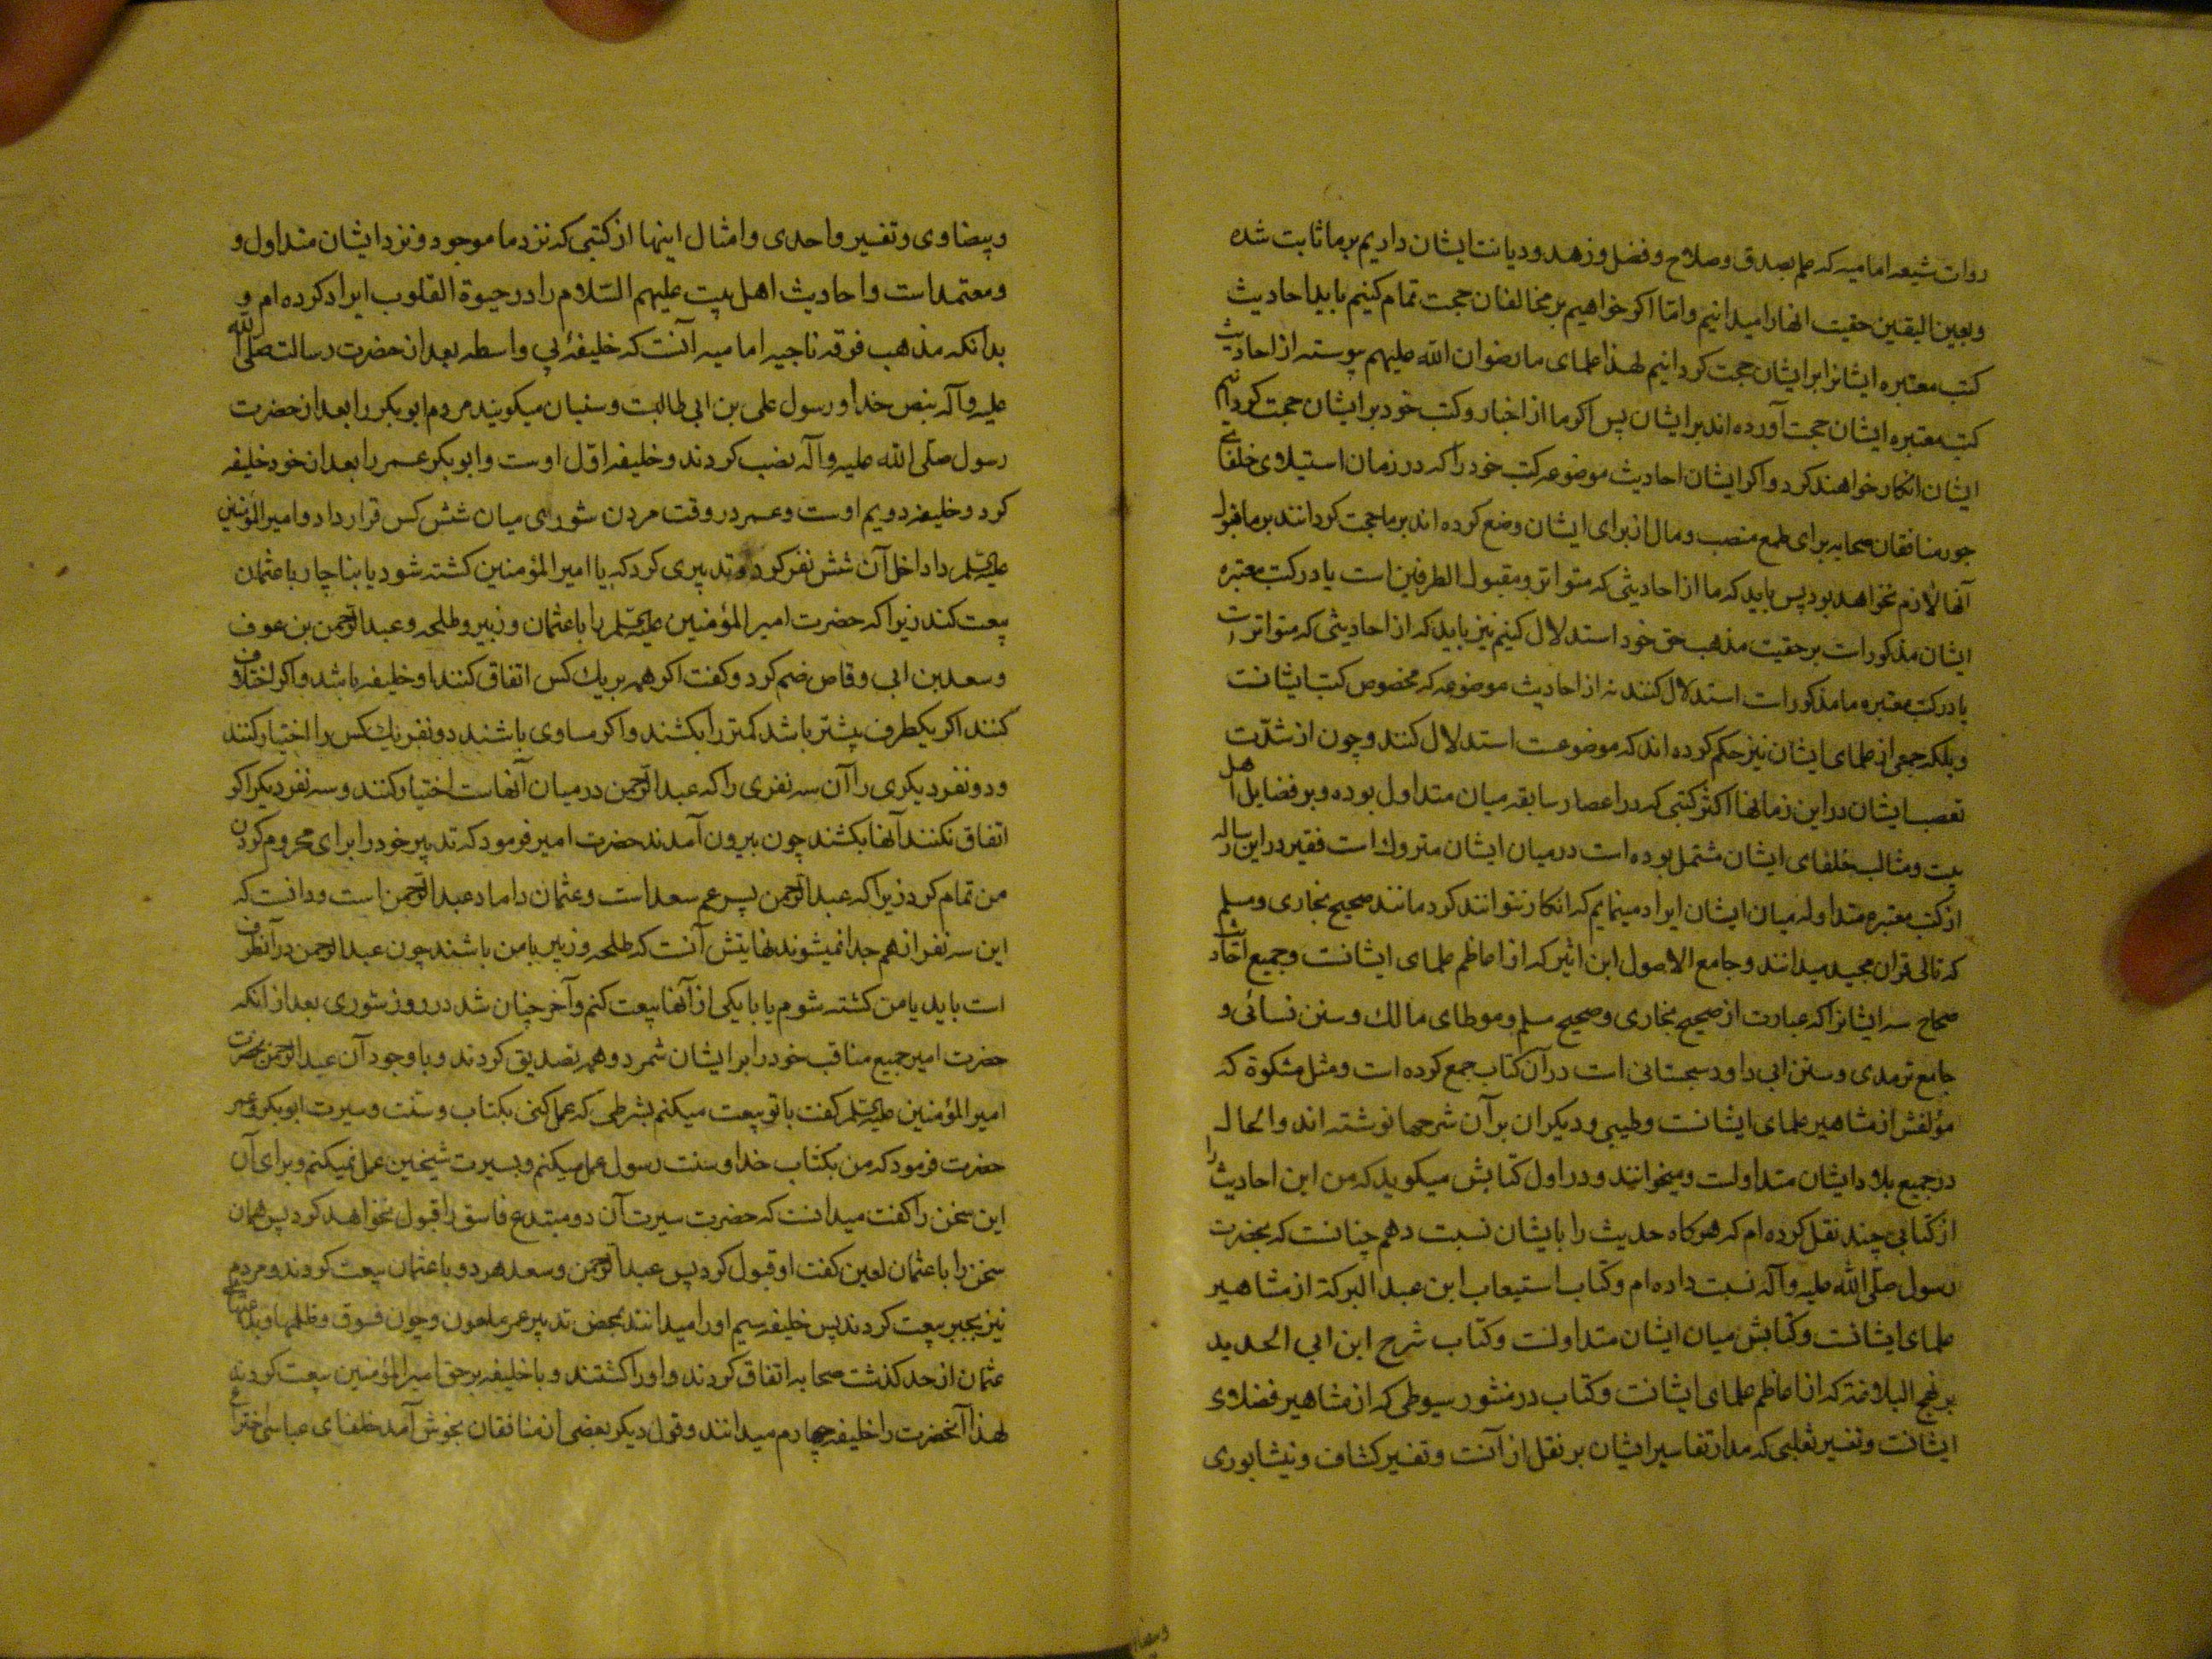 روات شیعه امامیه که علم بصدق و صلاح و فضل و زهد و دیانت ایشان داریم بر ما ثابت شده
و بعین الیقین حقیت آنها را میدانیم و امّا اکر خواهیم بر مخالفان حجت تمام کنیم باید احادیث
کتب معتبره ایشانرا بر ایشان حجت کردانیم لهذا علمای ما رضوان الله علیهم پیوسته از احادیث
کتب معتبره ایشان حجت آورده اند بر ایشان پس اکر ما از اخبار و کتب خود بر ایشان حجت کردانیم
ایشان انکار خواهند کرد و اکر ایشان احادیث موضوعه کتب خود را که در زمان استیلای خلفای
جور منافقان صحابه برای طمع منصب و مال از برای ایشان وضع کرده اند بر ما حجت کردانند بر ما قبول
آنها لازم نخواهد بود پس باید که ما از احادیثی که متواتر و مقبول الطرفین است یا در کتب معتبره
ایشان مذکور است بر حقیت مذهب حق خود استدلال کنیم نیز باید که از احادیثی که متواتر است
یا در کتب معتبره ما مذکور است استدلال کنند نه از احادیث موضوعه که مخصوص کتب ایشانست
و بلکه جمعی از علمای ایشان نیز حکم کرده اند که موضوعست استدلال کنند و چون از شدّت
تعصب ایشان در این زمانها اکثر کتبی که در اعصار سابقه میان متداول بوده و بر فضایل اهل
بیت و مثالب خلفای ایشان مشتمل بوده است در میان ایشان متروک است فقیر در این رساله
از کتب معتبره متداوله میان ایشان ایراد مینمایم که انکار نتوانند کرد مانند صحیح بخاری و مسلم
که تالی قران مجید میدانند و جامع الاصول ابن اثیر که از اعاظم علمای ایشانست و جمیع احادیث
صحاح سته ایشانرا که عبارت از صحیح بخاری و صحیح مسلم و موطای مالک و سنن نسائی و
جامع ترمدی و سنن ابی داود سجستانی است در آن کتاب جمع کرده است و مثل مشکوة که
مؤلفش از مشاهیر علمای ایشانست و طیبی و دیکران بر آن شرحها نوشته اند و الحال
در جمیع بلاد ایشان متداولست و میخوانند و در اول کتابش میکوید که من این احادیث را
از کتابی چند نقل کرده ام که هرکاه حدیث را بایشان نسبت دهم چنانست که بحضرت
رسول صلّی الله علیه و آله نسبت داده ام و کتاب استیعاب ابن عبد البر که از مشاهیر
علمای ایشانست و کتابش میان ایشان متداولست و کتاب شرح ابن ابی الحدید
بر نهج البلاغة که از اعاظم علمای ایشانست و کتاب در منثور سیوطی که از مشاهیر فضلای
ایشانست و تفسیر ثعلبی که مدار تفاسیر ایشان بر نقل از آنست و تفسیر کشاف و نیشابوری
و بیضاوی و تفسیر واحدی و امثال اینها از کتبی که نزد ما موجود و نزد ایشان متداول و
و معتمد است و احادیث اهل بیت علیهم السّلام را در حیوة القلوب ایراد کرده ام و
بدانکه مذهب فرقه ناجیه امامیه آنست که خلیفهٔ بی واسطه بعد از حضرت رسالت صلّی الله
علیه و آله بنص خدا و رسول علی بن ابی طالبست و سنیان میکویند مردم ابوبکر را بعد از حضرت
رسول صلّی الله علیه و آله نصب کردند و خلیفه اوّل اوست و ابوبکر عمر را بعد از خود خلیفه
کرد و خلیفه دویم اوست و عمر در وقت مردن شورای میان شش کس قرار داد و امیر المؤمنین
علیه السلم را داخل آن شش نفر کرد و تدبیری کرد که یا امیر المؤمنین کشته شود یا بناچار با عثمان
بیعت کند زیرا که حضرت امیر المؤمنین علیه السلم را با عثمان و زبیر و طلحه و عبد الرّحمن بن عوف
و سعد بن ابی وقاص ضم کرد و کفت اکر همه بر یک کس اتفاق کنند او خلیفه باشد و اکر اختلاف
کنند اکر یکطرف بیشتر باشد کمتر را بکشند و اکر مساوی باشند دو نفر یک کس را اختیار کنند
و دو نفر دیکری را آن سه نفری را که عبد الرّحمن در میان آنهاست اختیار کنند و سه نفر دیکر اکر
اتفاق نکنند آنها بکشند چون بیرون آمدند حضرت امیر فرمود که تدبیر خود را برای محروم کردن
من تمام کرد زیرا که عبد الرّحمن پسر عم سعد است و عثمان داماد عبد الرّحمن است و دانست که
این سه نفر از هم جدا نمیشوند نهایتش آنست که طلحه و زبیر با من باشند چون عبد الرحمن در آنطرف
است باید یا من کشته شوم یا با یکی از آنها بیعت کنم و آخر چنان شد در روز شوری بعد از انکه
حضرت امیر جمیع مناقب خود را بر ایشان شمرد و همه تصدیق کردند و با وجود آن عبد الرّحمن بحضرت
امیر المؤمنین علیه السلم کفت با تو بیعت میکنم بشرطی که عمل کنی بکتاب و سنّت و سیرت ابوبکر و عمر
حضرت فرمود که من بکتاب خدا و سنت رسول عمل میکنم و بسیرت شیخین عمل نمیکنم و برای آن
این سخن را کفت میدانست که حضرت سیرت آن دو مبتدع فاسق را قبول نخواهد کرد پس همان
سخن را با عثمان لعین کفت او قبول کرد پس عبد الرّحمن و سعد هر دو با عثمان بیعت کردند و مردم
نیز بجبر بیعت کردند پس خلیفه سیم او را میدانند بمحض تدبیر عمر ملعون و چون فسوق و ظلمها و بدعتهای
عثمان از حد کذشت صحابه اتفاق کردند و او را کشتند و با خلیفه بر حق امیر المؤمنین بیعت کردند
لهذا آنحضرت را خلیفه چهارم میدانند و قول دیکر بعضی از منافقان بخوش آمد خلفای عباسی اختراع